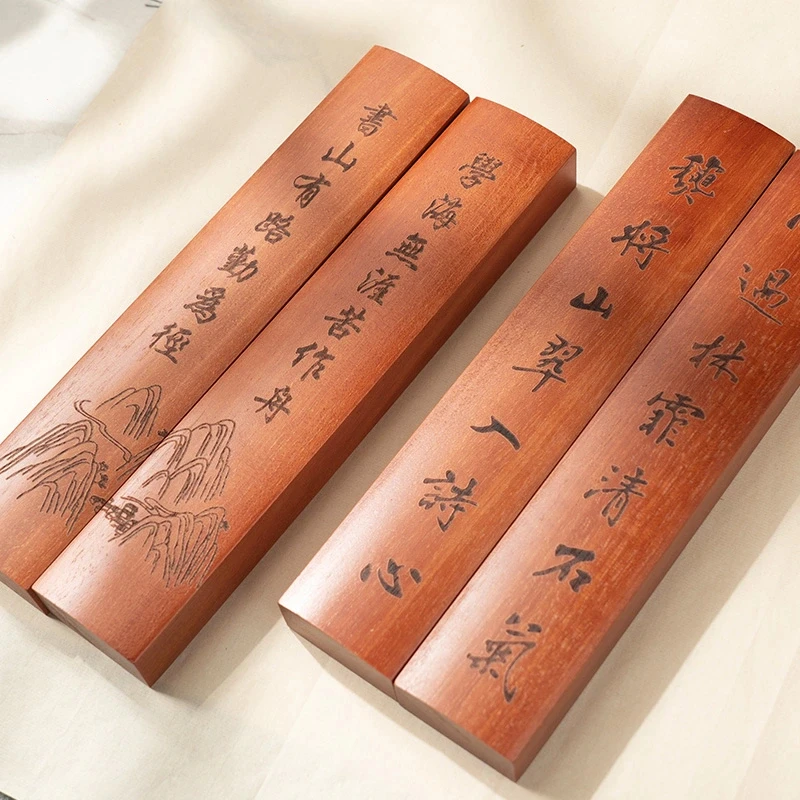 書山有路勤爲徑
學海無涯苦作舟
穐將山翠入詩心
過林霏清石氣